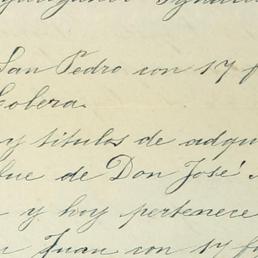 San Pedro con 17 f
Colera.
y titulos de adqu
fue de Don José
y hoy pertenece
Juan con 17 f